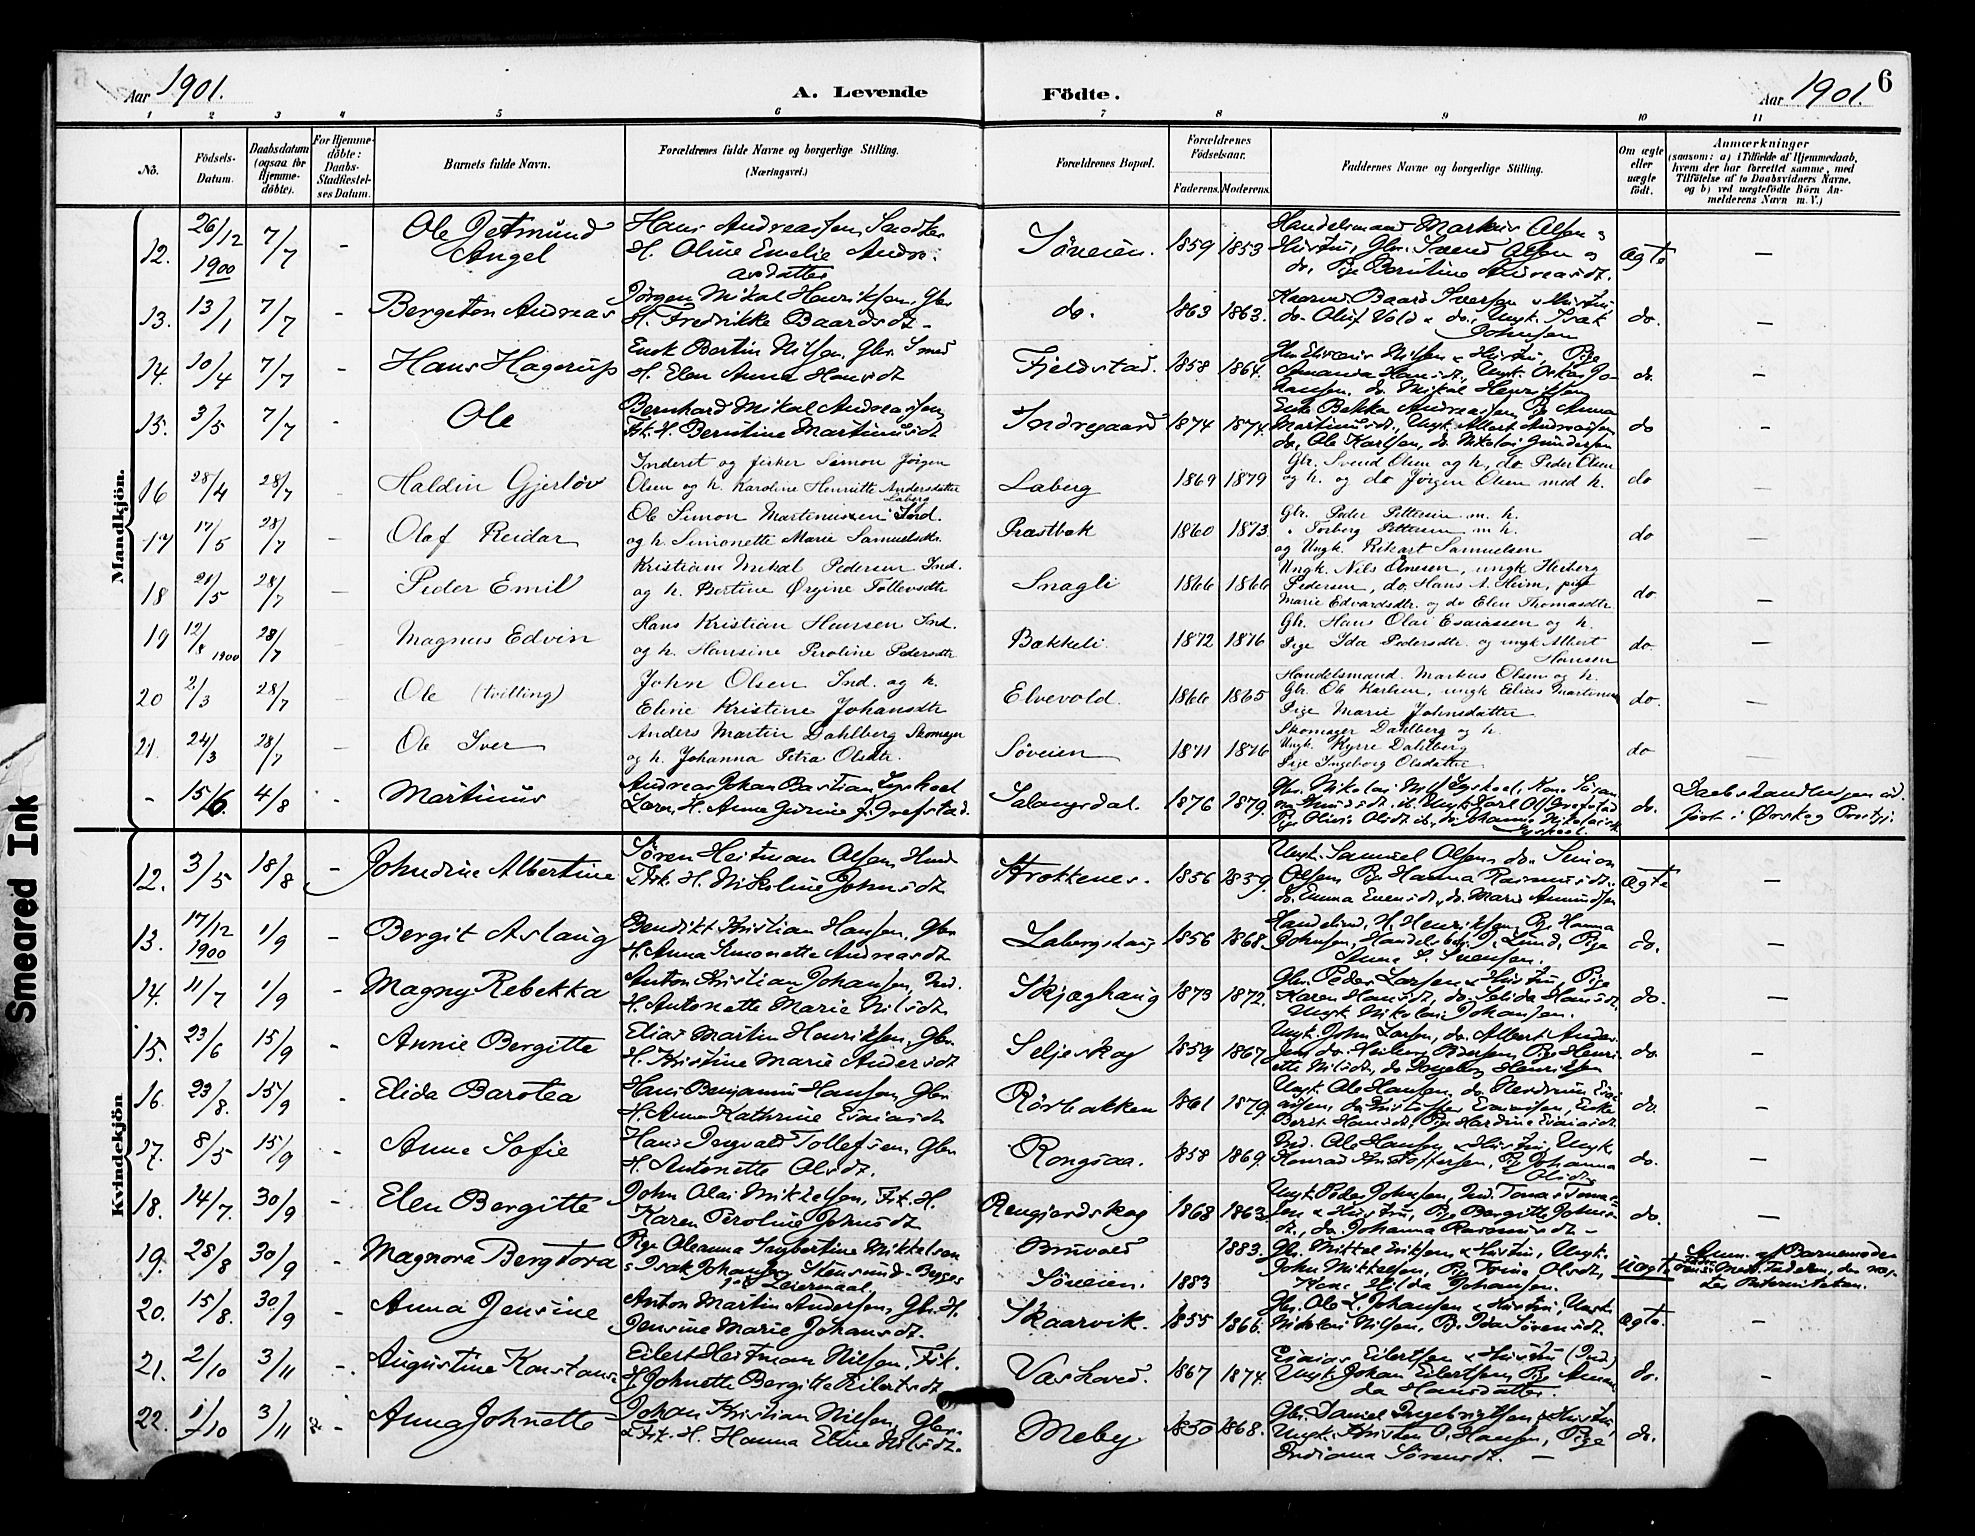 Aar 1901. A. Levende Födte. Aar 1901. 6
1 2 3 4 5 6 7 8 9 10 11
No. Födsels-Datum. Daabsdatum (ogsaa for Hjemmedöbte). For Hjemmedöbte: Daabs-Stadfæstelses Datum. Barnets fulde Navn. Forældrenes fulde Navne og borgerlige Stilling. (Næringsvei.) Forældrenes Bopæl. Forældrenes Födselsaar. Faderens. Moderens. Faddernes Navne og borgerlige Stilling. Om ægte eller uægte födt. Anmærkninger (saasom: a) i Tilfælde af Hjemmedaab, hvem der har forrettet samme, med Tilföielse af to Daabsvidners Navne, og b) ved uægtefödte Börn Anmelderens Navn m. V.)
Mandkjön.
12. 26/12 1900 7/7 - Ole Angel Hans Andreassen, H. Oline Emelie Andreasdatter Söveien. 1859 1853 Handelsmand Markus Olsen Hustru, Gbr. Svend Olsen og do, Pige Berntine Andreasdt. Ægte —
13. 13/1 7/7 - Bergeton Andreas Jörgen Mikal Henriksen, Gbr. H. Fredrikke Baardsdt. do. 1863 1863. Baard Iversen & Hustru do Oluf Vold & do, Ungk. Isak Johnsen do. —
14. 10/4 7/7 - Hans Hagerup Enok Bertin Nilsen, Gbr. Smed H. Elen Anna Hansdt Fjeldstad. 1858 1864. Nilsen & Hustru, Pige Amanda Hansdt, Ungk. Oskar Johansen, do. Mikal Henriksen do. —
15. 3/5 7/7 - Ole Bernhard Mikal Andreassen, Fsk. H. Berntine Martinusdt Indregaard 1874 1874. Enke Bekka Andreassen, Pg. Anna Martinusdt., Ungk. Albert Andreassen do, Ole Karlsen, do. Nikolai Gundersen do -
16 28/4 28/7 - Haldin Gjerlöv Inderst og fisker Simon Jörgen Olsen og h. Karoline Henriette Andersdatter Laberg Laberg 1869 1879 Gbr. Svend Olsen og h, do Peder Olsen og h. og do Jörgen Olsen med h. do —
17 17/5 28/7 - Olaf Reidar Ole Simon Martinussen Ind. og h. Simonette Marie Samuelsdtr. Præstbak 1860 1873 Gbr. Peder Pettersen m. h. " Torberg Pettersen m. h. og Ungk. Rikart Samuelsen do —
18 21/5 28/7 - Peder Emil Kristian Mikal Pedersen Ind. og h. Bertine Örgine Tollevsdtr Snagli 1866 1866 Ungk. Nils Arnesen, ungk Hedberg Pedersen, do. Hans A. Heim, pige Marie Edvardsdtr. og do Elen Thomasdtr. do —
19 12/8 1900 28/7 - Magnus Edvin Hans Kristian Hansen Ind. og h. Hansine Peroline Pedersdtr Bakkeli 1872 1876 Gbr. Hans Olai Esaiassen og h. Pige Ida Pedersdtr. og ungk Albert Hansen do —
20 2/3 28/7 - Ole (tvilling) John Olsen Ind. og h. Eline Kristine Johansdtr Elvevold. 1866 1865 Handelsmand. Markus Olsen og h. Gbr. Ole Karlsen, ungk Elias Martinussen Pige Marie Johnsdatter do. —
21. 24/3 28/7 - Ole Iver Anders Martin Dahlberg Skomager og h. Johanna Petra Olsdtr. Söveien 1871 1876 Skomager Dahlberg og h. Ungk. Kyrre Dahlberg Pige Ingeborg Olsdatter do —
- 15/6. 4/8 - Martinus Andreas Johan Bastian Lyshoel Lærer, H. Anne Gurine J. Grefstad. Salangsdal. 1876 1879. Gbr. Nikolai Lyshoel, Kone Knudsdt. Ungk. Karl Ol. Grefstad Pige Olivia Olsdt, do Johanna Nikolaisdt Lyshoel. do. Daabshandlingen udfört i Ørskog Prstgj.
Kvindekjön
12. 3/5 18/8 - Johndine Albertine Sören Heitman Olsen, Fsk. H. Nikoline Johnsdt Strokkenes. 1856 1859. Ungk. Samuel Olsen, do. Simon Olsen, Pg. Hanna Rasmusdt., do. Emma Evensdt, do. Maria Amundsen Ægte —
13. 17/12 1900 1/9 - Bergit Aslaug Bendikt Kristian Hansen, Gbr H. Anna Simonette Andreasdt Labergshaug 1856 1868. H. Henriksen, Pg. Hanna Johnsen, Handelsb. J. Lund, Pige Anna S. Svensen. do. —
14. 11/7 1/9 - Magny Rebekka Anton Kristian Johansen, Ind. H. Antonette Marie Nilsdt Skjæghaug 1873 1872. Gbr. Peder Larsen & Hustru, Pige Karen Hansdt, do. Selida Hansdt, Ungk. Nikolai Johansen. do. —
15. 23/6 15/9 - Annie Bergitte Elias Martin Henriksen, Gbr. H. Kristine Marie Andersdt Seljeskog 1859 1867 Ungk. John Larsen, do. Albert Andersen do. Heiberg Pedersen, Pige Henriette Nilsdt, do Ingeborg Henriksen do. —
16. 23/8. 15/9 - Elida Barotea Hans Benjamin Hansen, Gbr H. Anna Kathrine Esaiasdt Rörbakken 1861 1879. Ungk. Ole Hansen, do Esaiassen, do Kristoffer Esaiassen, Enke Berit Hansdt, Pige Hardine Esaiasdt. do. —
17. 8/5 15/9 - Anne Sofie Hans Ingvald Tollefsen, Gbr. H. Antonette Olsdt. Rongsaa. 1858 1869. Ind. Ole Hansen & Hustru, Ungk. Konrad Kristoffersen, Pg Johanna Olsdt do. —
18. 14/7. 30/9 - Elen Bergitte John Olai Mikkelsen, Fsk. H. Karen Peroline Johnsdt Rengjerdskog 1868 1863 Ungk. Peder Johnsen, Ind. Tomas Tomassen & Hustru, Pg Bergitte Johnsdt, do. Johanna Rasmusdt - do. —
19. 28/8 30/9 - Magnora Bergtora Pige Oleanna Ingbertine Mikkelsen & Isak Johansen Stensund - Begges 1ste Leiermaal. Bruvold Söveien. 1883 1883. Gbr. Mikkel Eriksen & Hustru, Ungk. John Mikkelsen, Pg. Trine Olsdt, Kone Hilda Johansen. Uægt. Anm. af Barnemoder
20. 15/8. 30/9 - Anna Jensine Anton Martin Andersen, Gbr. H. Jensine Marie Johansdt. Skaarvik. 1855 1866. Gbr. Ole L. Johansen & Hustru, Ungk Nikolai Nilsen, Pg. Ida Sörensdt. Ægte. —
21. 2/10 3/11 - Augustine Konstanse Eilert Heitman Nilsen, Fsk. H. Johnette Bergitte Eilertsdt Vashoved. 1867 1874. Esaias Eilertsen & Hustru (Ind) Ungk Johan Eilertsen, Pg Amanda Hansdatter. do. -
22. 1/10 3/11 - Anna Johnette Johan Kristian Nilsen, Gbr. & Fsk. H. Hanna Eline Nilsdt. Meby. 1850 1868. Gbr. Daniel Ingebrigtsen & Hustru, Ungk. Kristen O. Hansen, Pige Indiana Sörensdt. — do. —
Smeared Ink